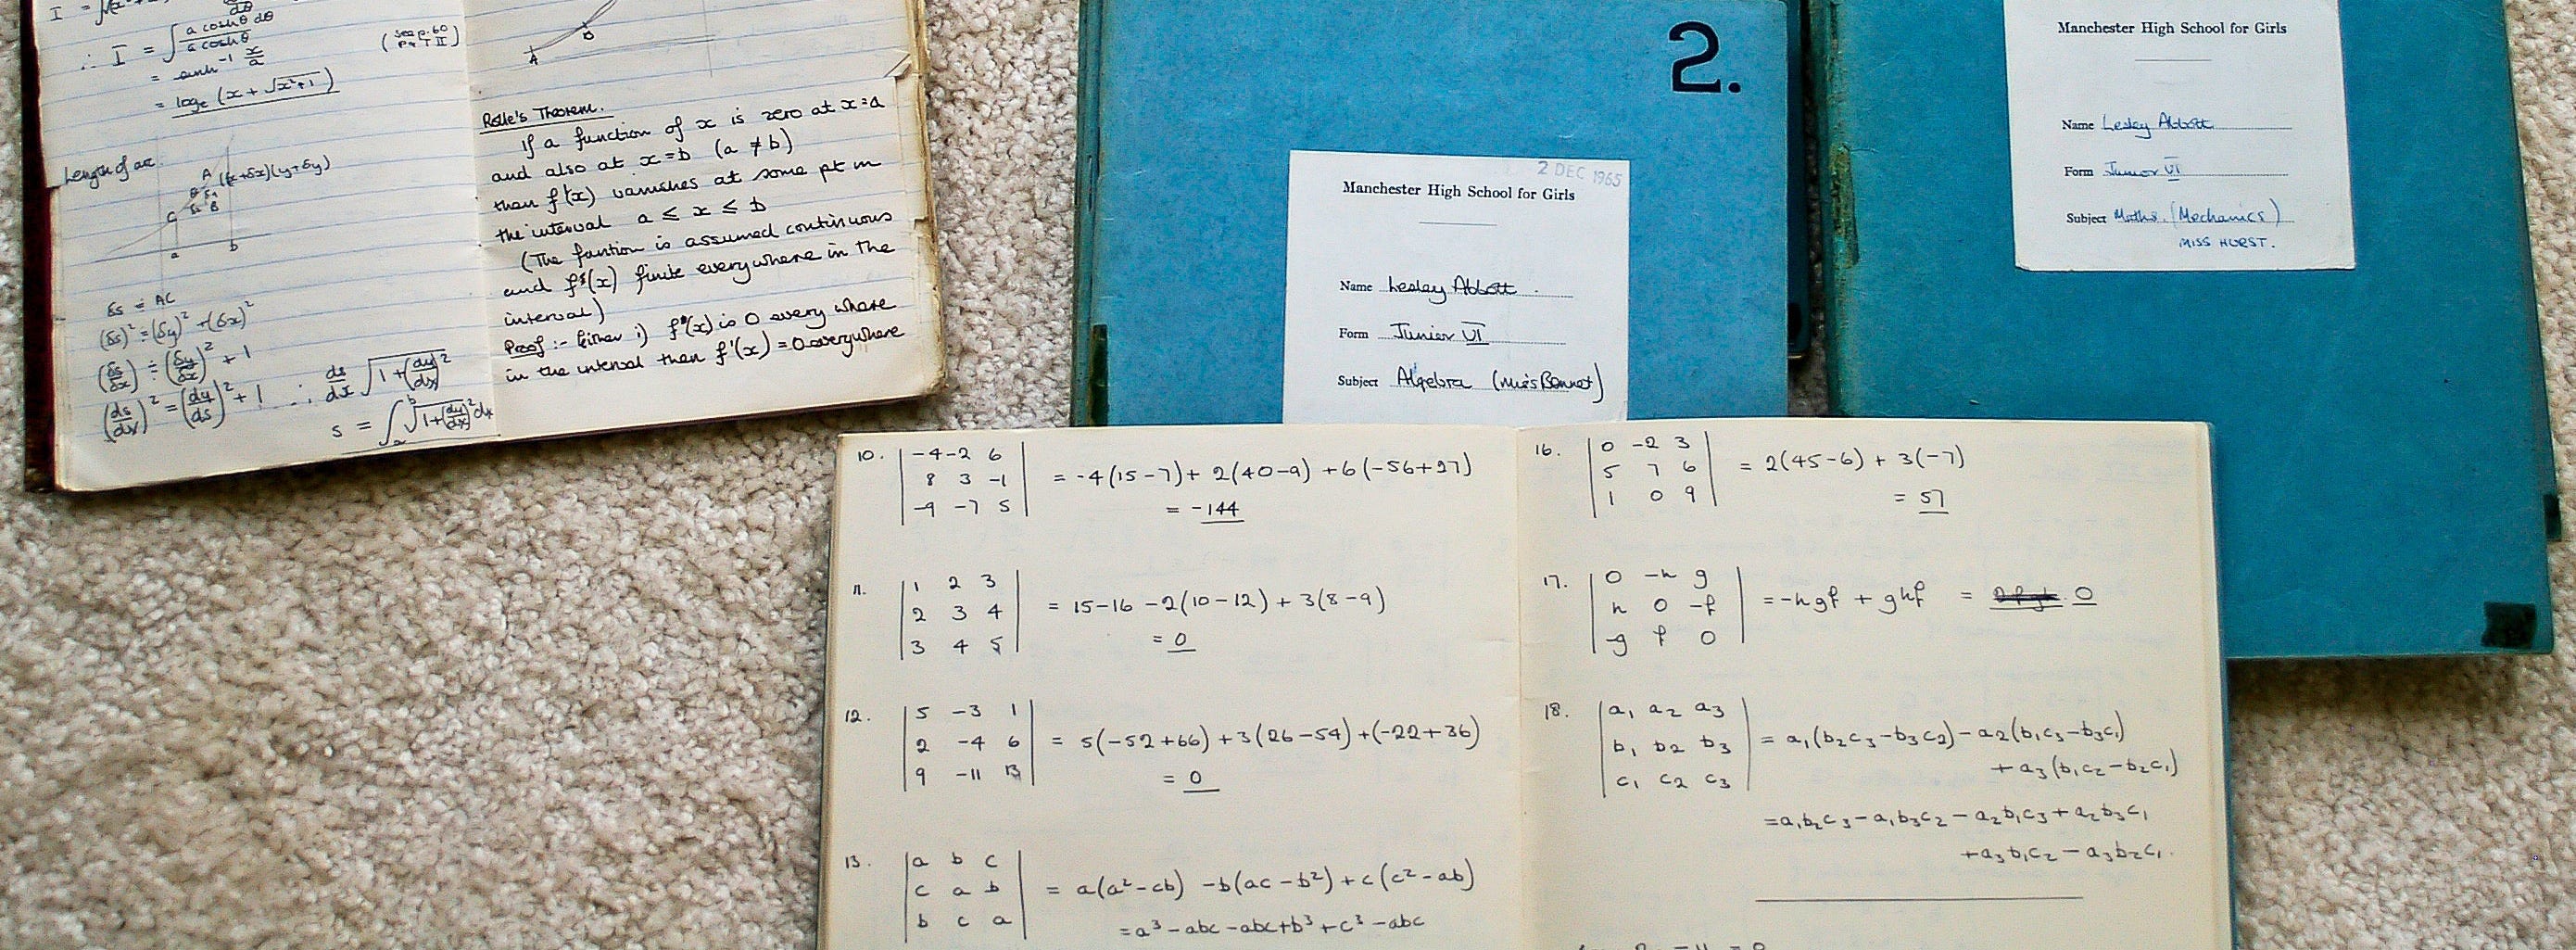 ∴ I = ∫ a coshθ dθ / a coshθ
(see p. 60 Pt II)
= sinh⁻¹ x/a
= logₑ (x + √x²+1)
Length of arc
A (x+δx)(y+δy)
C
B
a
b
δs ≑ AC
(δs)² = (δy)² + (δx)²
(δs/δx)² ≑ (δy/δx)² + 1
(ds/dx)² = (dy/ds)² + 1 ∴ ds/dx √1+(dy/dx)²
s = ∫ₐᵇ √1+(dy/dx)² dx
A
B
Rolle's Theorem.
If a function of x is zero at x=a
and also at x=b (a ≠ b)
then f'(x) vanishes at some pt in
the interval a ≤ x ≤ b
(The fantion is assumed continuous
and f'(x) finite everywhere in the
interval)
Proof :- Either i) f(x) is 0 every where
in the interval then f'(x) = 0 everywhere
2.
2 DEC 1965
Manchester High School for Girls
Name Lesley Abbott.
Form Junior VI
Subject Algebra (Miss Bennet)
Manchester High School for Girls
Name Lesley Abbott
Form Junior VI
Subject Maths. (Mechanics)
MISS HURST.
10. | -4 -2 6 |
| 8 3 -1 | = -4(15-7) + 2(40-9) + 6(-56+27)
| -9 -7 5 | = -144
11. | 1 2 3 |
| 2 3 4 | = 15-16 -2(10-12) + 3(8-9)
| 3 4 5 | = 0
12. | 5 -3 1 |
| 2 -4 6 | = 5(-52+66) + 3(26-54) + (-22+36)
| 9 -11 13 | = 0
13. | a b c |
| c a b | = a(a²-cb) -b(ac-b²) + c(c²-ab)
| b c a | = a³-abc-abc+b³+c³-abc
16. | 0 -2 3 |
| 5 7 6 | = 2(45-6) + 3(-7)
| 1 0 9 | = 57
17. | 0 -h g |
| h 0 -f | = -hgf + ghf = 0
| -g f 0 |
18. | a₁ a₂ a₃ |
| b₁ b₂ b₃ | = a₁(b₂c₃-b₃c₂) - a₂(b₁c₃-b₃c₁)
| c₁ c₂ c₃ | + a₃(b₁c₂-b₂c₁)
= a₁b₂c₃ - a₁b₃c₂ - a₂b₁c₃ + a₂b₃c₁
+ a₃b₁c₂ - a₃b₂c₁.